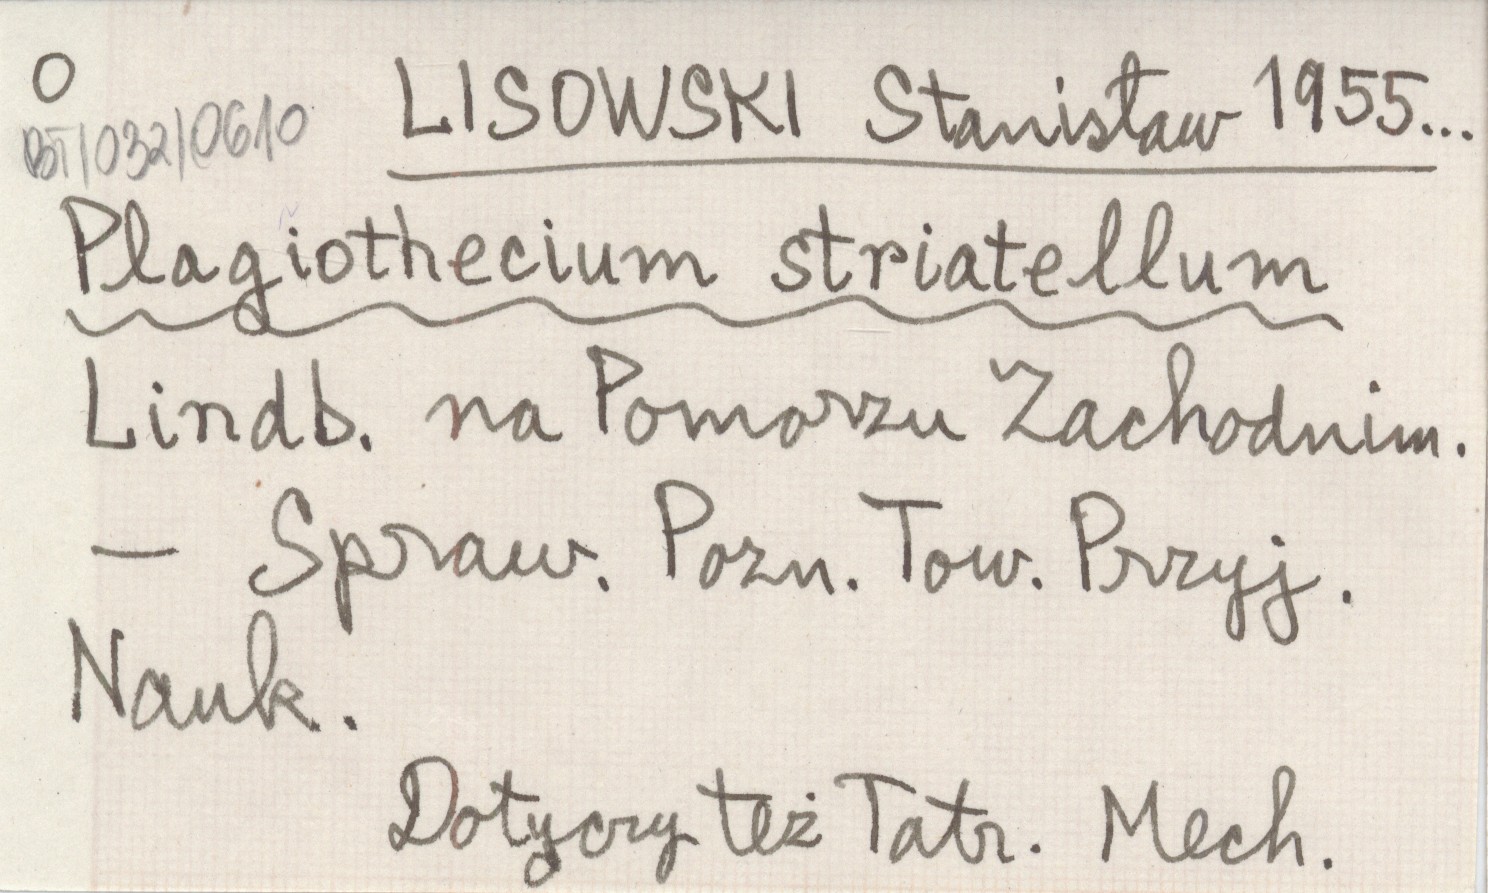 O
LISOWSKI Stanisław 1955...
BT/032/0610
Plagiothecium striatellum
Lindb. na Pomorzu Zachodnim.
— Spraw. Pozn. Tow. Przyj.
Nauk.
Dotyczy też Tatr. Mech.